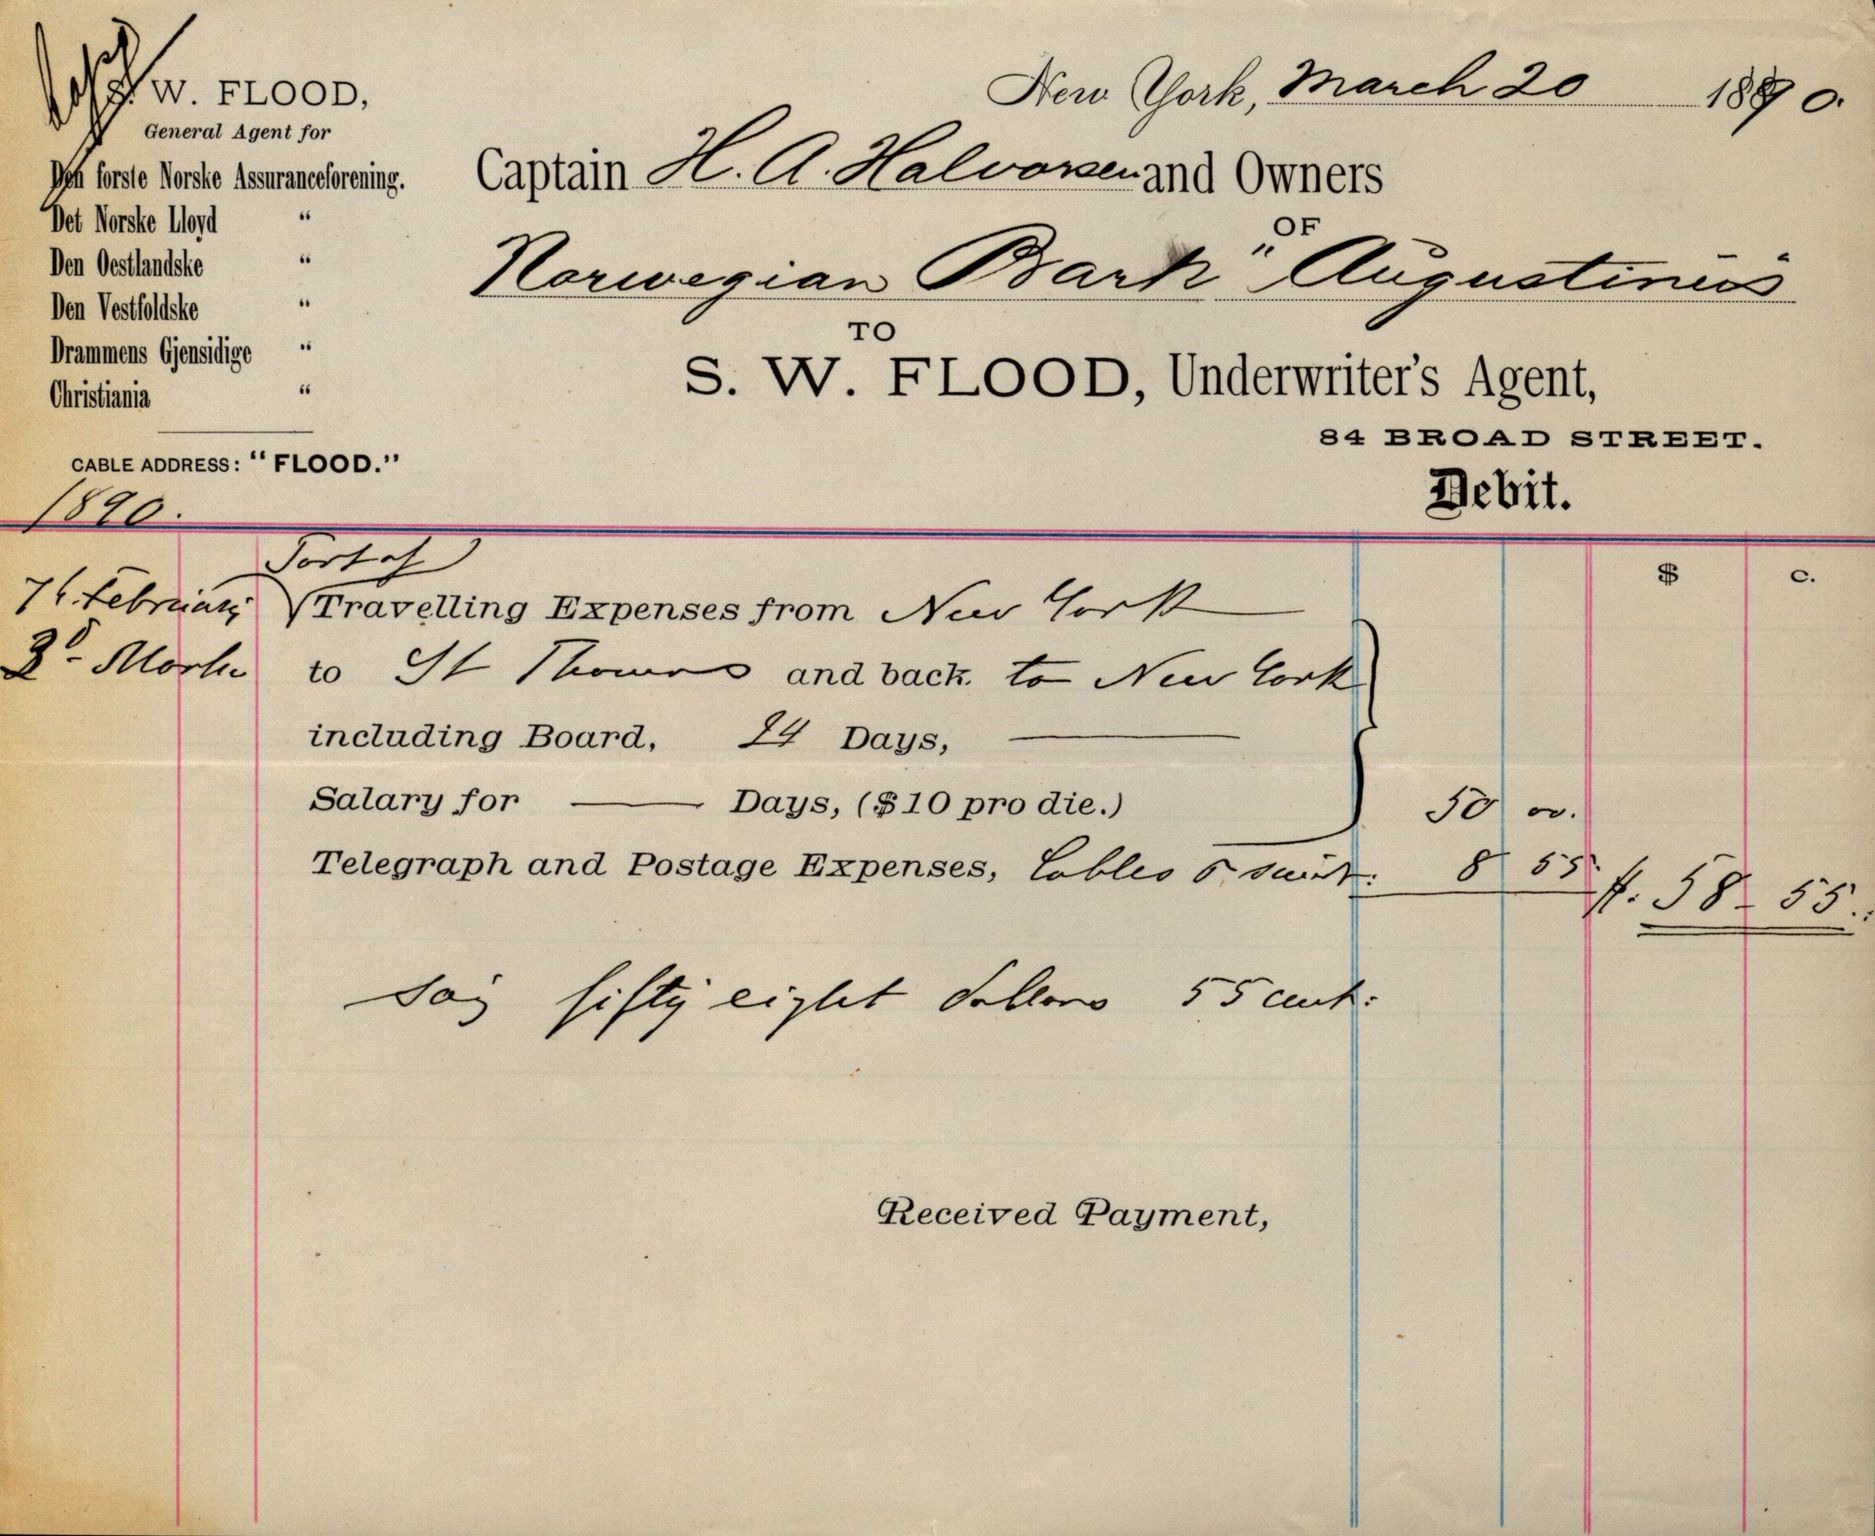 S. W. FLOOD,
General Agent for
Den forste Norske Assuranceforening.
Det Norske Lloyd "
Den Oestlandske "
Den Vestfoldske "
Drammens Gjensidige "
Christiania "
CABLE ADDRESS: "FLOOD."
New York, March 20 1890.
Captain H. A. Halvorsen and Owners
OF
Norwegian Bark "Augustinus"
TO
S. W. FLOOD, Underwriter's Agent,
84 BROAD STREET.
Debit.
1890.
$ c.
Part of
February Travelling Expenses from New York
to St Thomas and back to New York
including Board, 24 Days,
Salary for — Days, ($10 pro die.) 50 00.
Telegraph and Postage Expenses, Cables 8 55. $. 58-55.
Say fifty eight dollars 55 cent:
Received Payment,